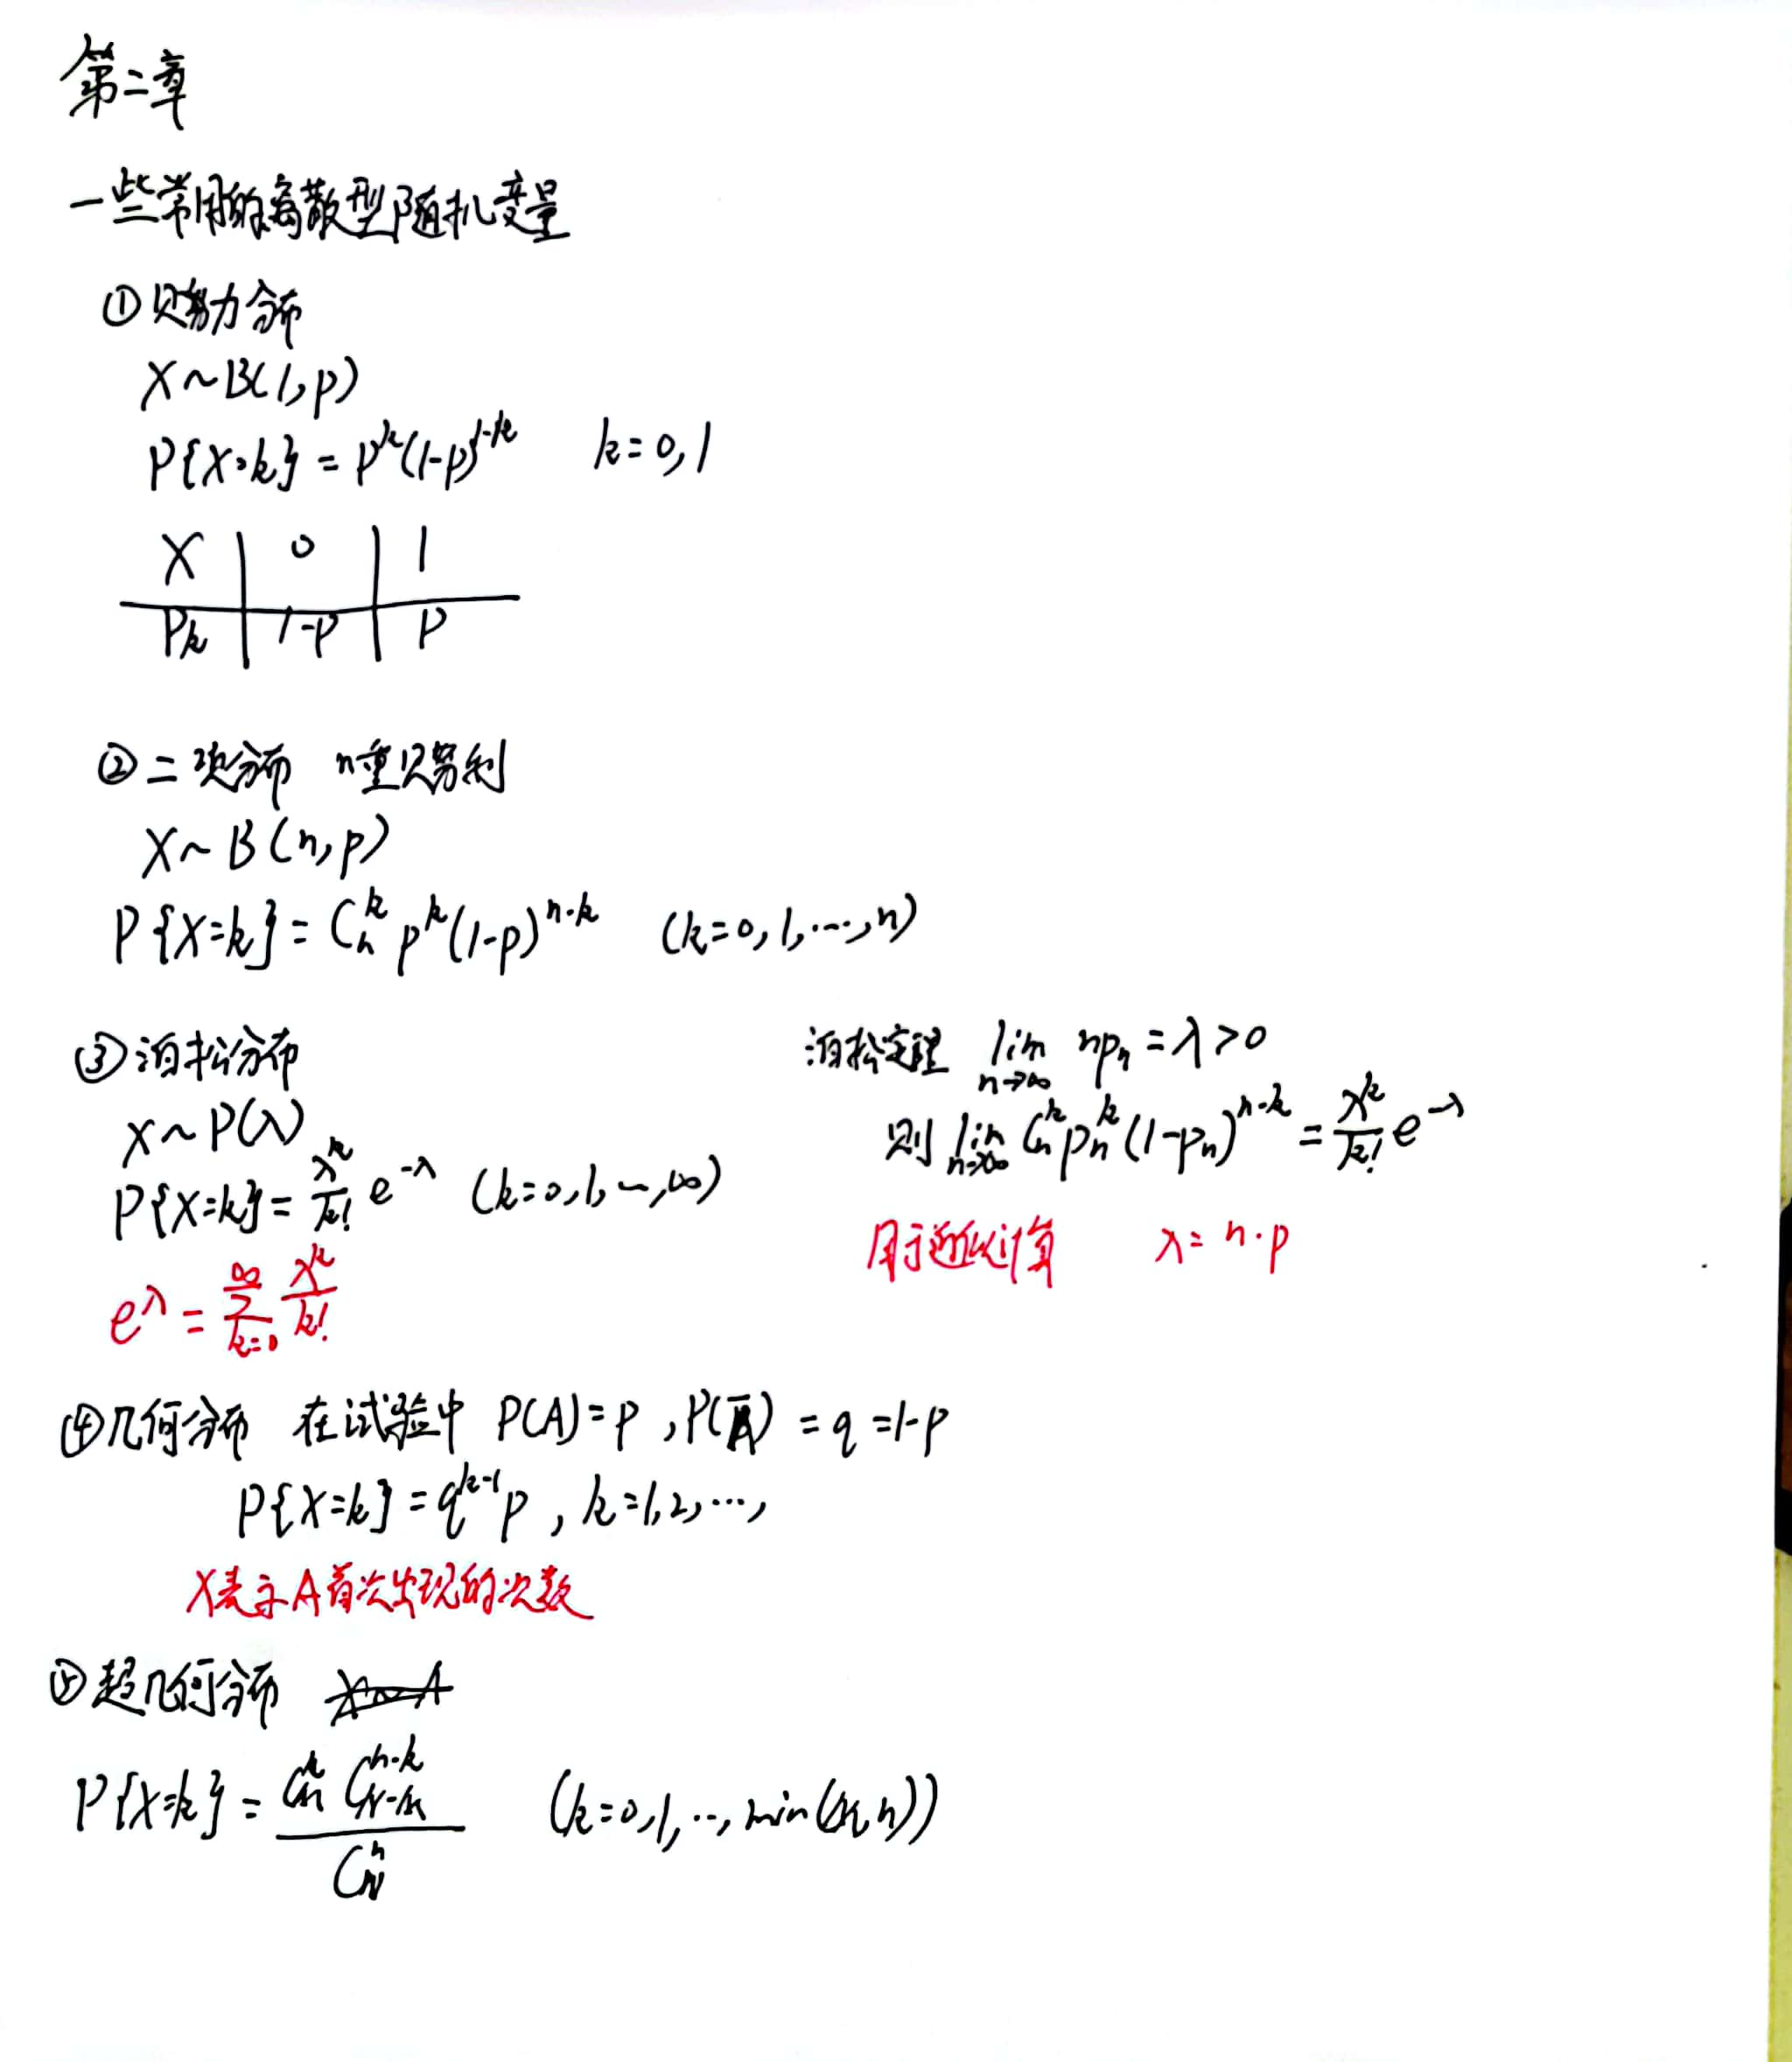 第二章
一些常用的离散型随机变量
① 贝努力分布
X~B(1,p)
P{X=k} = p^k(1-p)^{1-k} k=0,1
X | 0 | 1
P_k | 1-p | p
② 二项分布 n重贝努利
X~B(n,p)
P{X=k} = C_n^k p^k(1-p)^{n-k} (k=0,1,…,n)
③ 泊松分布
X~P(λ)
P{X=k} = \frac{λ^k}{k!} e^{-λ} (k=0,1,…,∞)
e^λ = \sum_{k=0}^{∞} \frac{λ^k}{k!}
泊松定理 \lim_{n→∞} np_n = λ > 0
则 \lim_{n→∞} C_n^k p_n^k (1-p_n)^{n-k} = \frac{λ^k}{k!} e^{-λ}
用于近似计算 λ = n·p
④ 几何分布 在试验中 P(A)=p ,P(\bar{A}) = q =1-p
P{X=k} = q^{k-1}p , k=1,2,…,
X表示A首次出现的次数
⑤ 超几何分布
P{X=k} = \frac{C_M^k C_{N-M}^{n-k}}{C_N^n} (k=0,1,…,min(M,n))